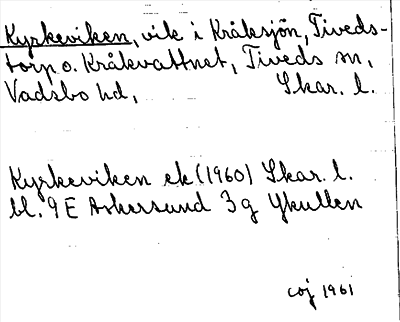 Kyrkeviken, vik i Kråksjön, Tiveds-
torp o. Kråkvattnet, Tiveds sn,
Vadsbo hd, Skar. l.
Kyrkeviken ek (1960) Skar. l.
bl. 9 E Askersund 3 g Ykullen
coj 1961